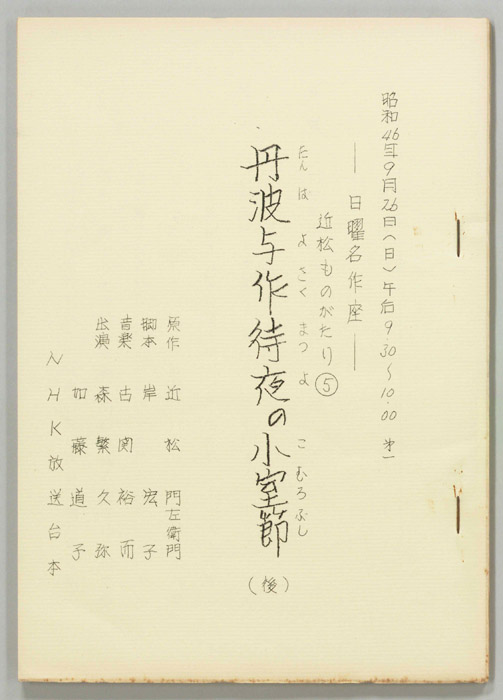 昭和46年9月26日(日)午后9.30〜10.00 オ一
―― 日曜名作座 ――
近松ものがたり⑤
たんばよさくまつよのこむろぶし
丹波与作待夜の小室節
(後)
原作 近松門左衛門
脚本 岸宏子
音楽 古関裕而
出演 森繁久弥
加藤道子
NHK放送台本